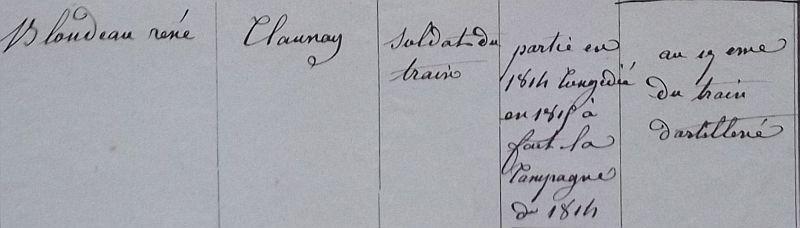 Blondeau rené
Claunay
soldat du
train
partie en
1814 Congédié
en 1815 à
fait la
Campagne
de 1814
au 19 eme
du train
dartillerié